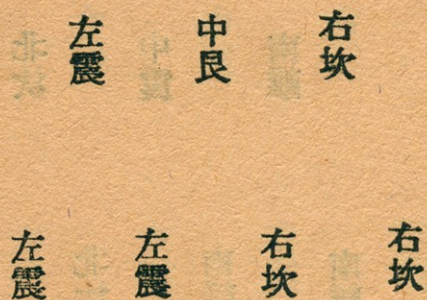 右坎
中艮
左震
右坎
右坎
左震
左震